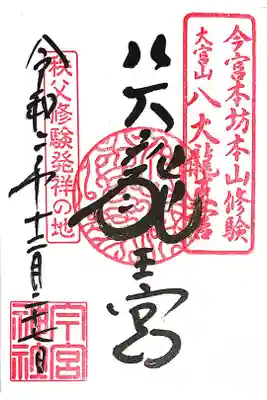 今宮木坊本山修験
大宮山 八大龍王宮
八大龍王宮
秩父修験発祥の地
令和二年十二月二十七日
今宮神社